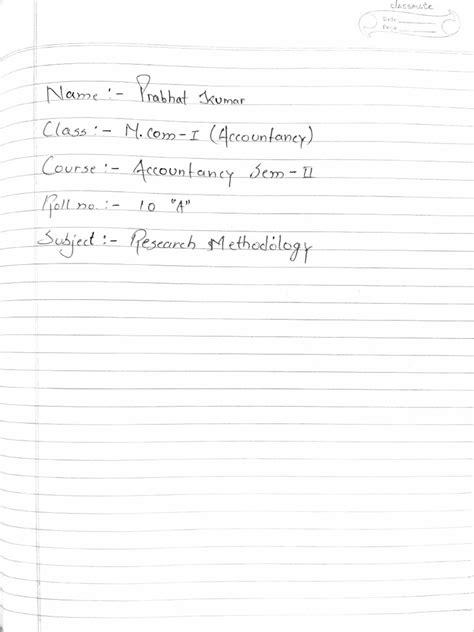 classmate
Date
Page
Name :- Prabhat Kumar
Class :- M.com-I (Accountancy)
Course :- Accountancy Sem-II
Roll no. :- 10 "A"
Subject :- Research Methodology